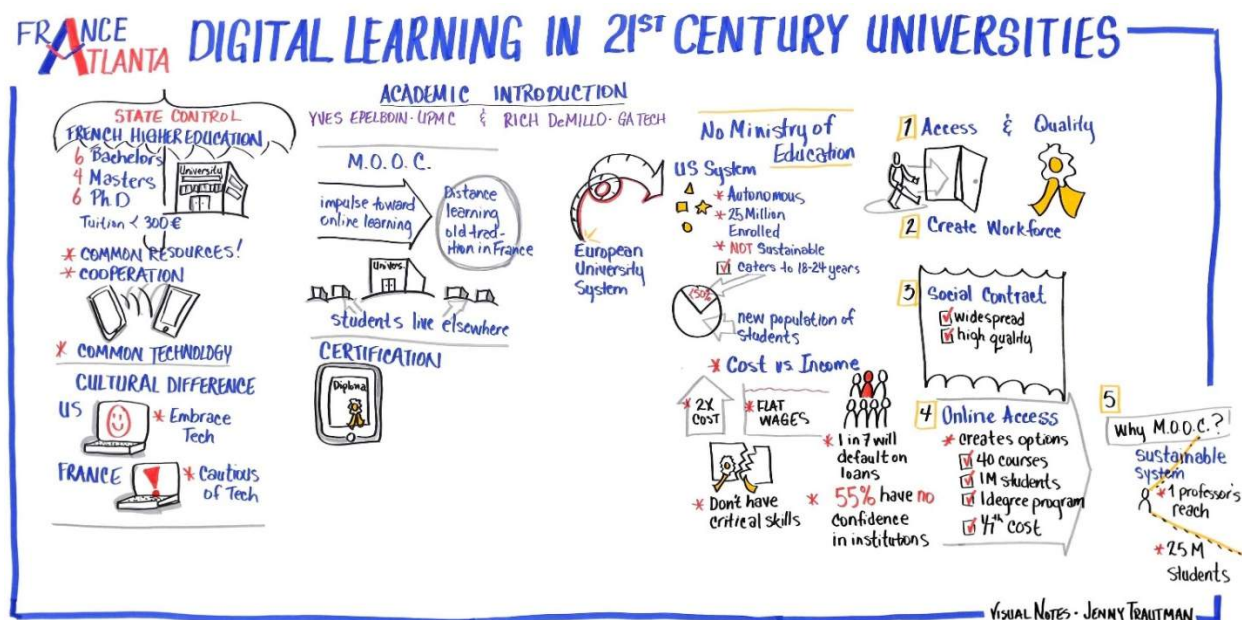 FRANCE
ATLANTA
DIGITAL LEARNING IN 21ST CENTURY UNIVERSITIES
ACADEMIC INTRODUCTION
YVES EPELBOIN - UPMC & RICH DeMILLO - GA TECH
STATE CONTROL
FRENCH HIGHER EDUCATION
6 Bachelors
4 Masters
6 Ph.D
University
Tuition < 300 €
* COMMON RESOURCES!
* COOPERATION
* COMMON TECHNOLOGY
CULTURAL DIFFERENCE
US
* Embrace
Tech
FRANCE
!
* Cautious
of Tech
M.O.O.C.
impulse toward
online learning
Distance
learning
old trad-
ition in France
Univers.
students live elsewhere
CERTIFICATION
Diploma
European
University
System
No Ministry of
Education
US System
* Autonomous
* 25 Million
Enrolled
* NOT Sustainable
Caters to 18-24 years
<50%
new population of
students
* Cost vs Income
* 2X
COST
* FLAT
WAGES
* 1 in 7 will
default on
loans
* Don't have
critical skills
* 55% have no
confidence
in institutions
1 Access & Quality
2 Create Workforce
3 Social Contract
widespread
high quality
4 Online Access
* creates options
40 courses
1M students
1 degree program
1/7th cost
5
Why M.O.O.C.?
sustainable
system
* 1 professor's
reach
* 25 M
Students
VISUAL NOTES - JENNY TRAUTMAN